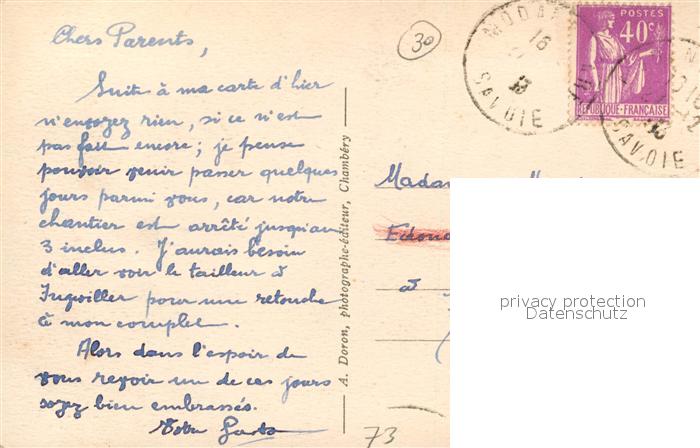 Chers Parents,
Suite à ma carte d'hier
n'envoyez rien, si ce n'est
pas fait encore; je pense
pouvoir venir passer quelques
jours parmi vous, car notre
chantier est arrêté jusqu'au
3 inclus. J'aurais besoin
d'aller voir le tailleur à
Ingwiller pour une retouche
à mon complet.
Alors dans l'espoir de
vous revoir un de ces jours
soyez bien embrassés.
Votre
A. Doron, photographe-éditeur, Chambéry
30
MODA
16
33
SAVOIE
POSTES
40c
REPUBLIQUE-FRANÇAISE
SAVOIE
Madam
Edou
à
73
privacy protection
Datenschutz